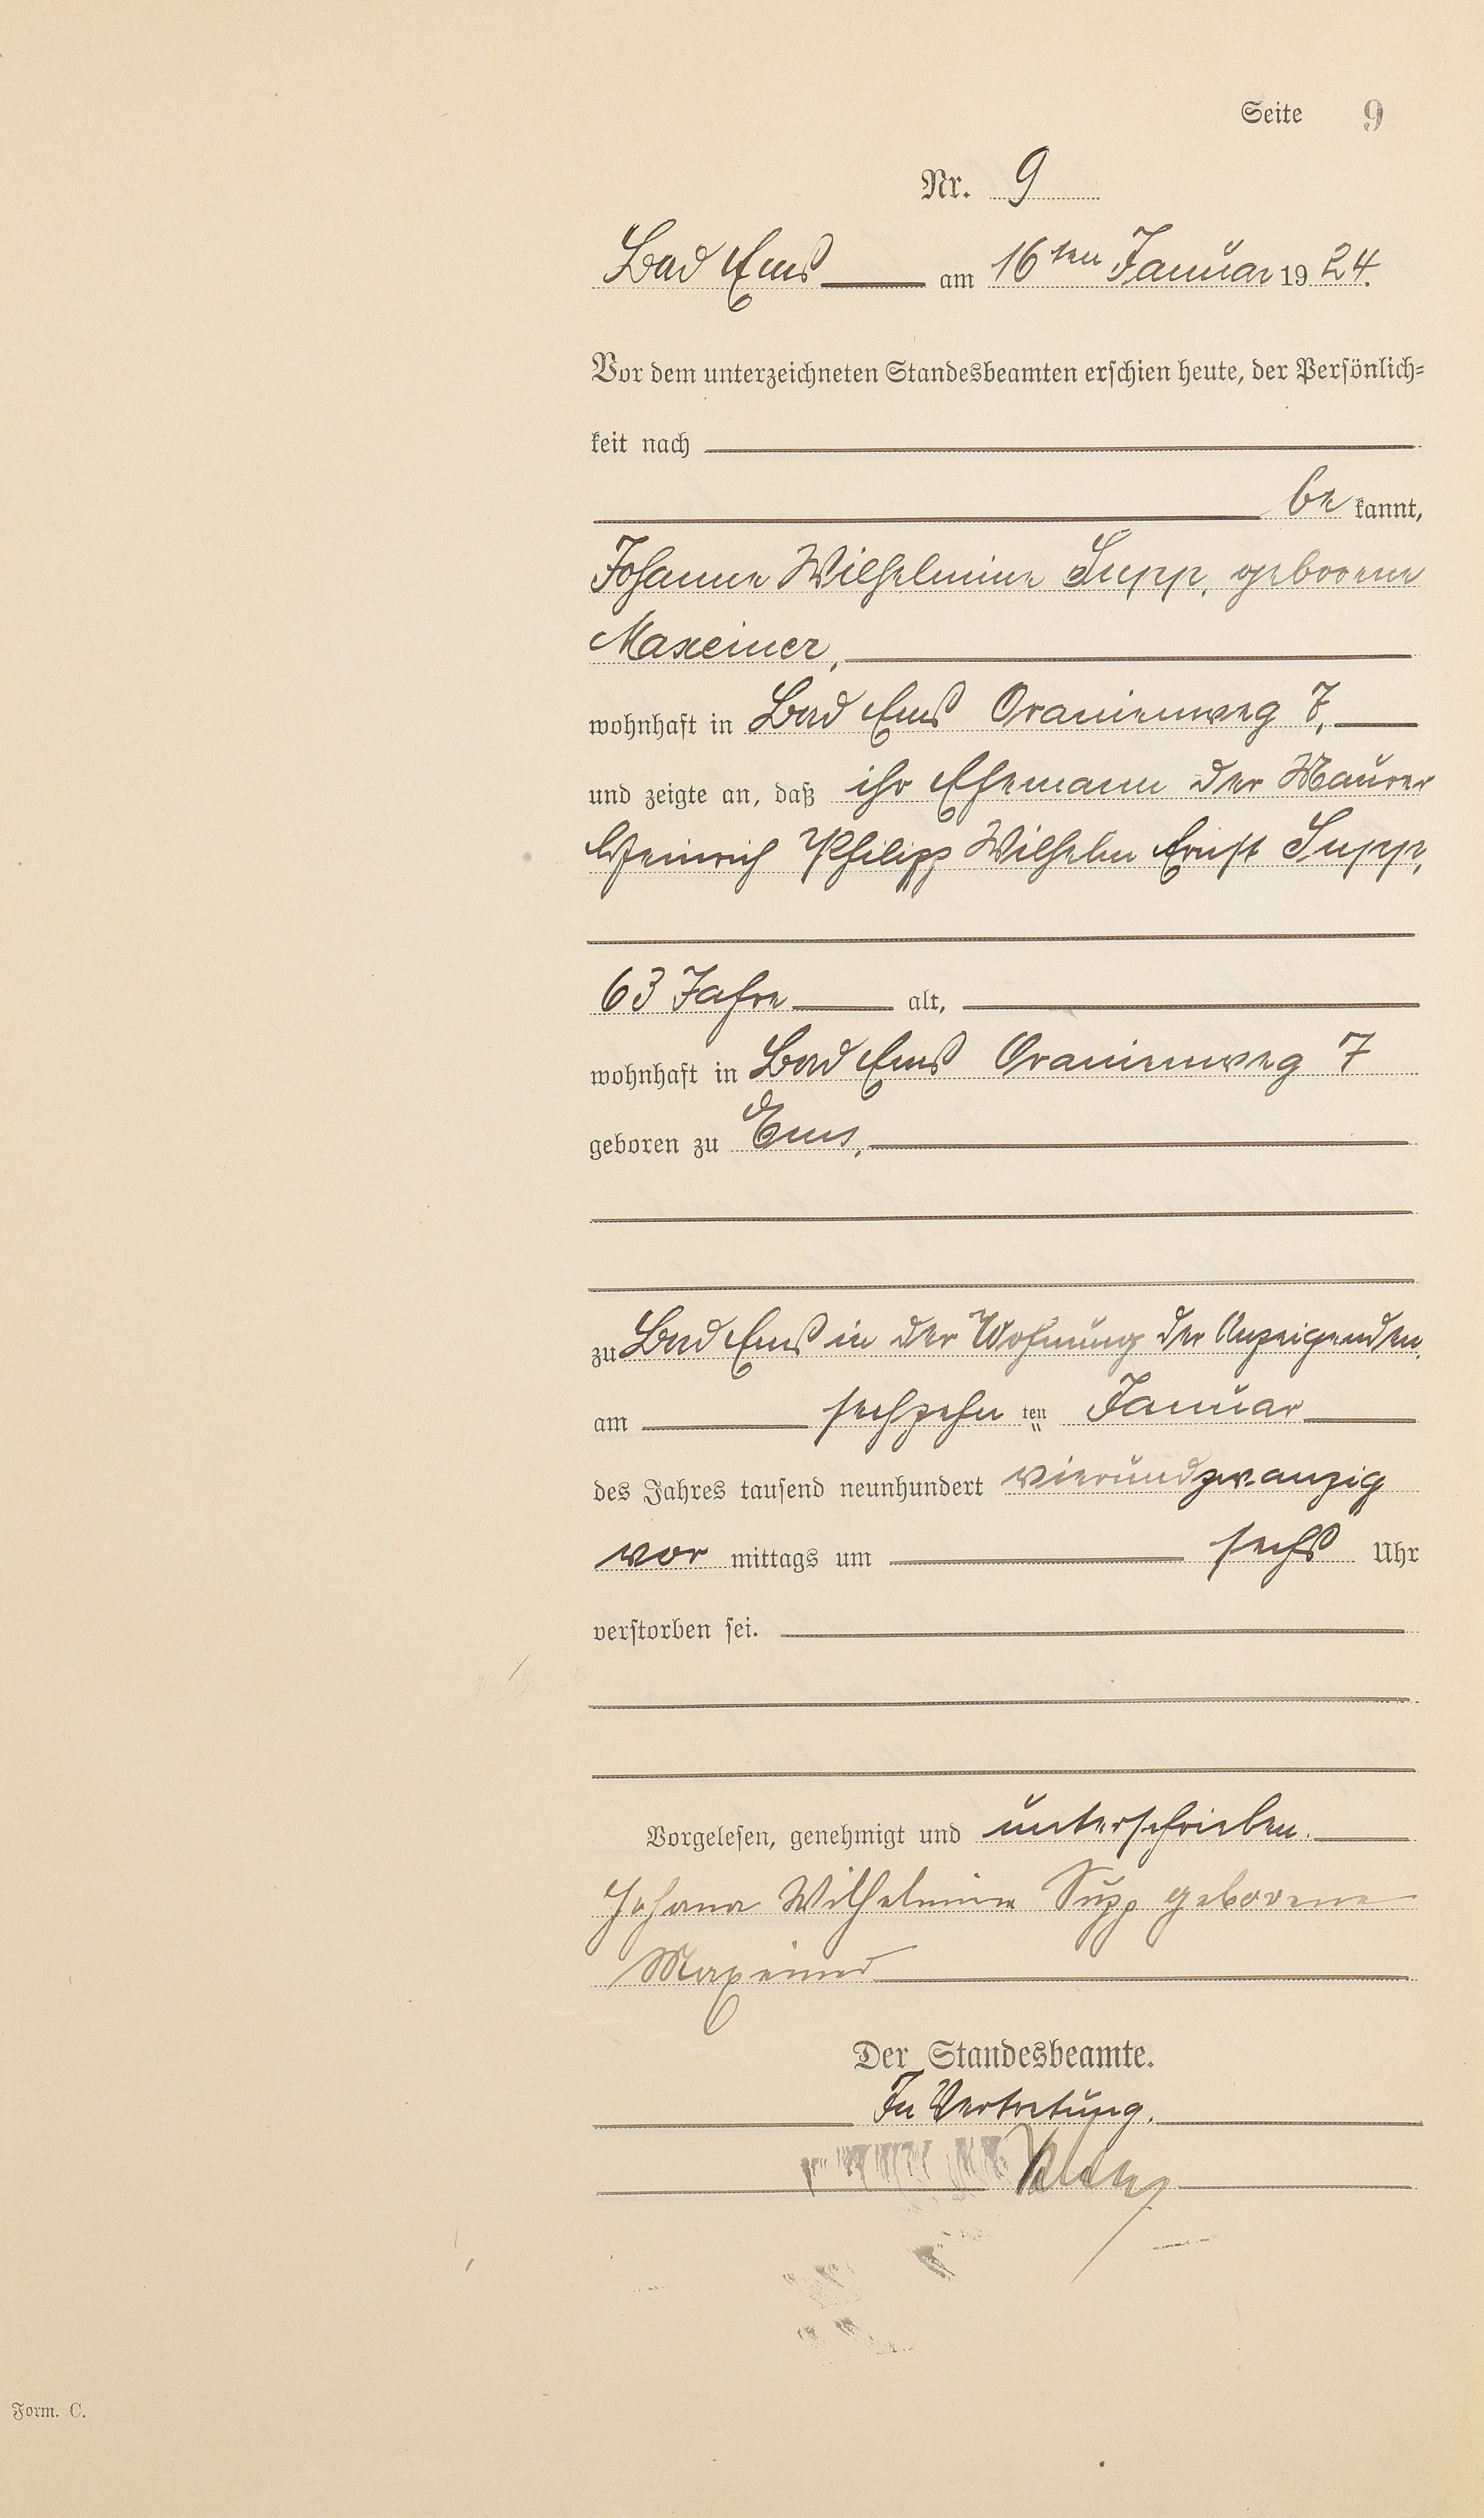 Seite 9
Nr. 9
Bad Ems am 16ten Januar 1924.
Vor dem unterzeichneten Standesbeamten erschien heute, der Persönlich-
keit nach
be kannt,
Johanne Wilhelmine Supp, geborene
Maxeiner,
wohnhaft in Bad Ems Oranienweg 7,
und zeigte an, daß ihr Ehemann der Maurer
Heinrich Philipp Wilhelm Ernst Supp,
63 Jahre alt,
wohnhaft in Bad Ems Oranienweg 7
geboren zu Ems,
zu Bad Ems in der Wohnung der Anzeigenden,
am sechzehn ten Januar
des Jahres tausend neunhundert vierundzwanzig
vor mittags um sechs Uhr
verstorben sei.
Vorgelesen, genehmigt und unterschrieben.
Johana Wilhelmine Supp geborene
Maxeiner
Der Standesbeamte.
In Vertretung.
Form. C.